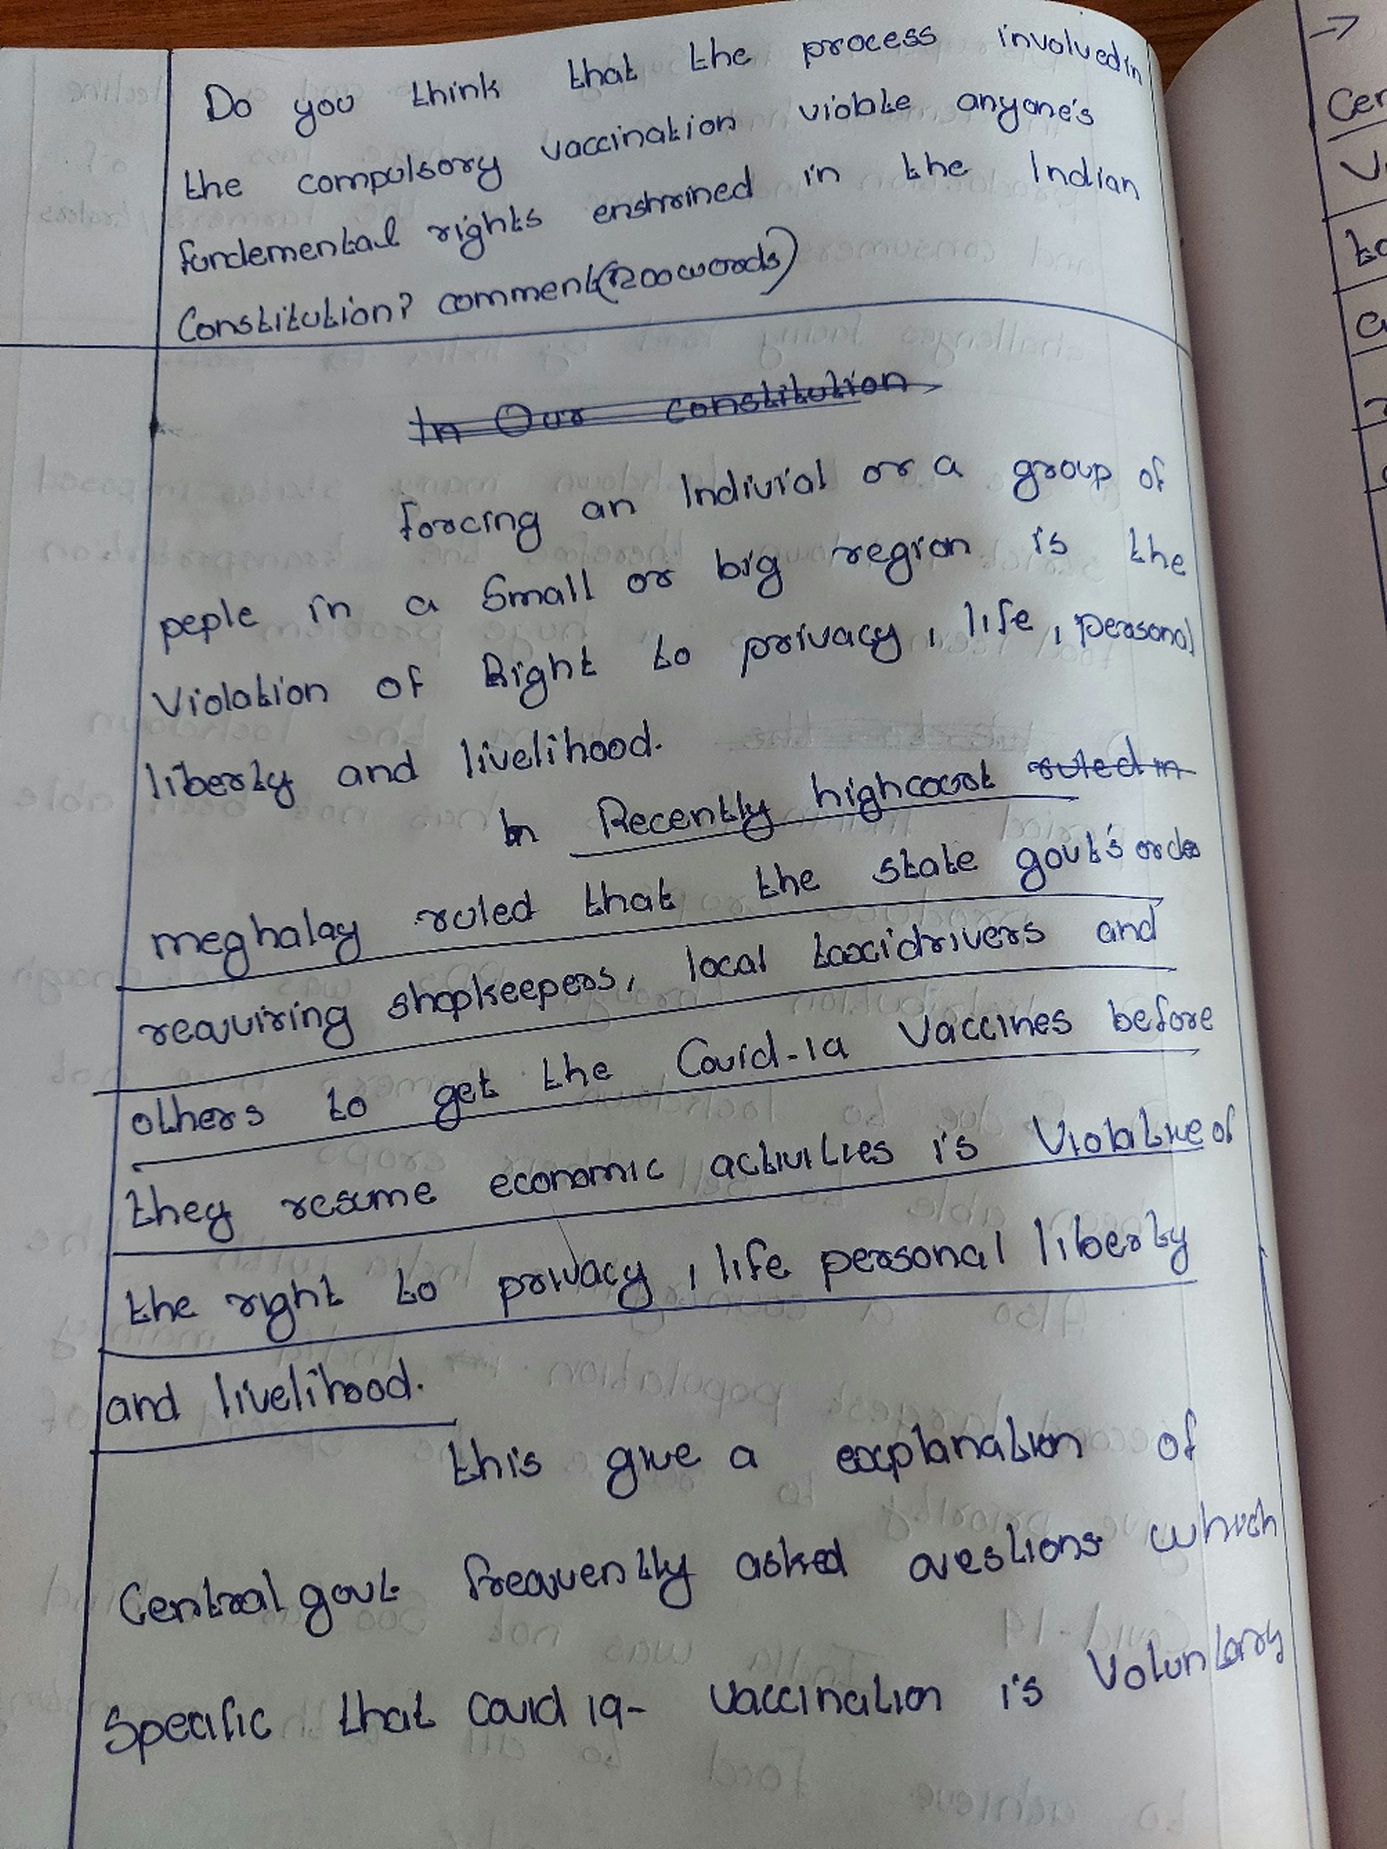 Do you think that the process involved in
the compulsory vaccination violate anyone's
fundemental rights enshrined in the Indian
Constitution? comment (200 words)
In Our constitution
forcing an Indivial or a group of
peple in a small or big region is the
violation of Right to privacy, life, personal
liberty and livelihood.
In Recently highcourt ruled in
meghalay ruled that the state govt's order
requiring shopkeepers, local taxidrivers and
others to get the Covid-19 vaccines before
they resume economic activities is violative of
the right to privacy, life personal liberty
and livelihood.
this give a explanation of
Central govt frequently asked questions which
Specific that Covid 19- vaccination is voluntary
→
Cer